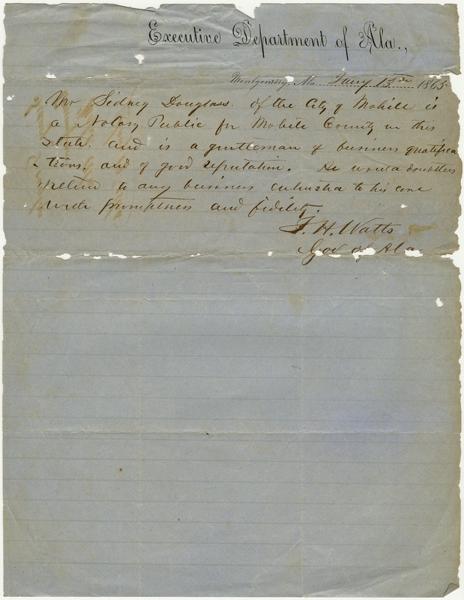 Executive Department of Ala.,
Montgomery, Ala. Jany 13th 1865
Mr Sidney Douglass of the City of Mobile is
a Notary Public for Mobile County in this
State and is a gentleman of business qualifica
tions, and of good reputation. He would doubtless
attend to any business entrusted to his care
with promptness and fidelity.
T. H. Watts
Gov of Ala